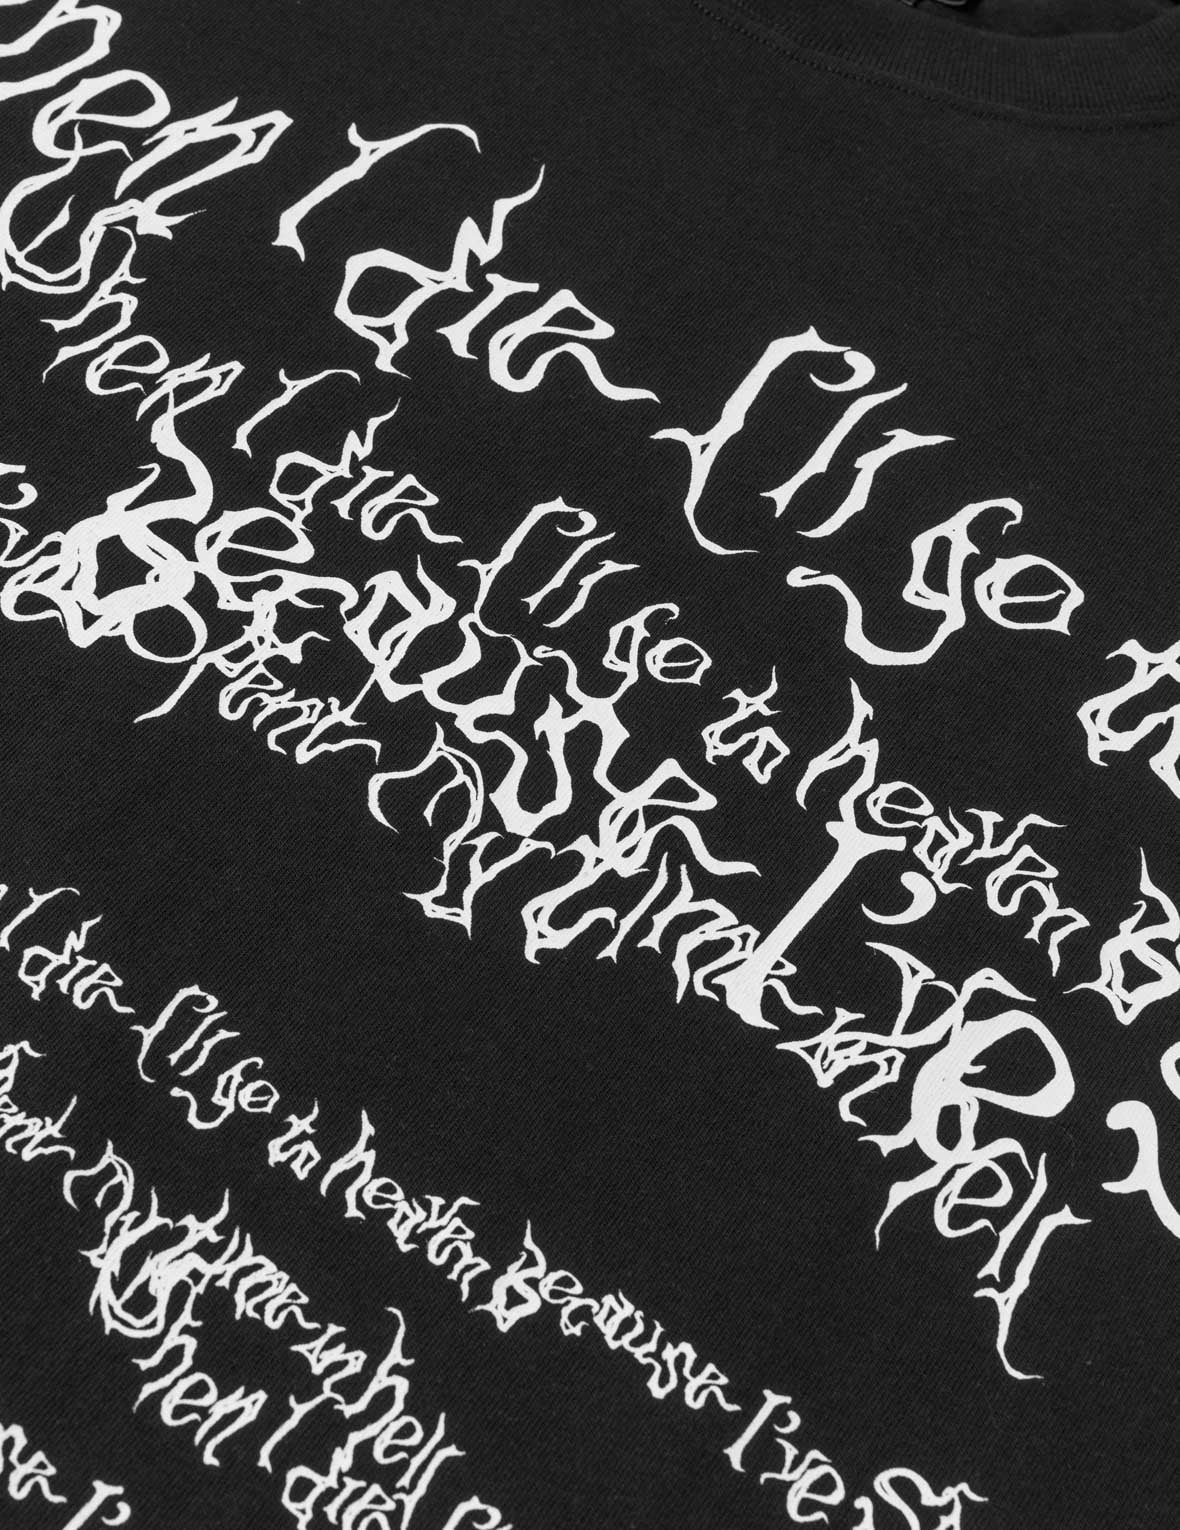 hen I die I'll go to
When I die I'll go to heaven B
Because I've S
spent my time in hell
I die I'll go to heaven Because I've S
spent my time in hell
When I die I
se I'